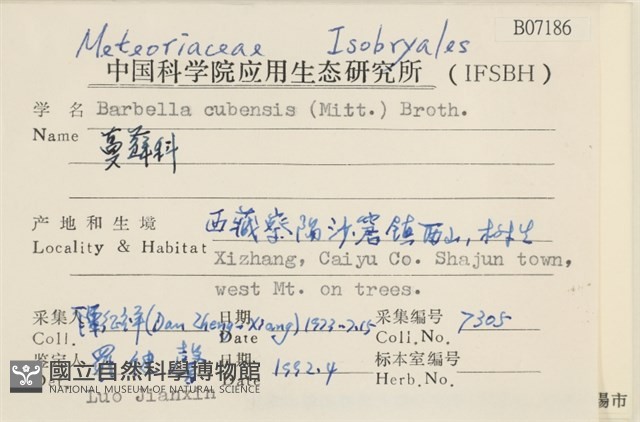 B07186
Meteoriaceae Isobryales
中国科学院应用生态研究所 (IFSBH)
学名 Barbella cubensis (Mitt.) Broth.
Name
蔓藓科
产地和生境 西藏察隅沙 镇西山,树生
Locality & Habitat
Xizhang, Caiyu Co. Shajun town,
west Mt. on trees.
采集人 (Dan Zheng-Xiang) 日期 1973-7.15 采集编号 7305
Coll. Date Coll.No.
鉴定人 日期 1992.4 标本室编号
Det. Date Herb.No.
國立自然科學博物館
NATIONAL MUSEUM OF NATURAL SCIENCE
Luo Jianxin
陽市